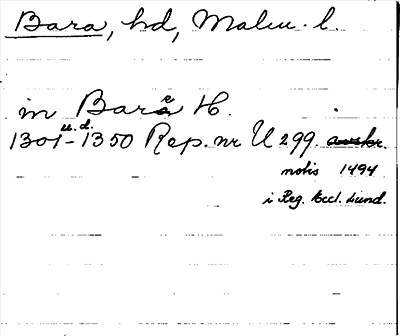 Bara, hd, Malm. l.
in Baræ H.
1301 u.d. - 1350 Rep. nr U 299. avskr.
notis 1494
i Reg. Eccl. Lund.